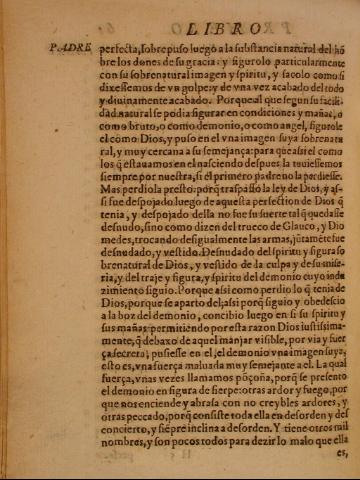 LIBRO
PADRE
perfecta, sobrepuso luego a la substancia natural del hõ
bre los dones de su gracia: y figurolo particularmente
con su sobrenatural imagen y spiritu, y sacolo como si
dixessemos de vn golpe: y de vna vez acabado del todo
y diuinamente acabado. Porque al que segun su facili-
dad natural se podia figurar en condiciones y mañas, o
como bruto, o como demonio, o como angel, figurole
el como Dios, y puso en el vna imagen suya sobrenatu
ral, y muy cercana a su semejança: para que assi el como
los q̃ estauamos en el nasciendo despues la tuuiessemos
siempre por nuestra, si el primero padre no la perdiesse.
Mas perdiola presto: porq̃ traspasso la ley de Dios, y as-
si fue despojado luego de aquesta perfection de Dios q̃
tenia, y despojado della no fue su suerte tal q̃ quedasse
desnudo, sino como dizen del trueco de Glauco, y Dio
medes, trocando desigualmente las armas, jũtamẽte fue
desnudado, y vestido. Desnudado del spiritu y figura so
brenatural de Dios, y vestido de la culpa y de su mise-
ria, y del traje y figura, y spiritu del demonio cuyo indu
zimiento siguio. Porque assi como perdio lo q̃ tenia de
Dios, porque se aparto del; assi porq̃ siguio y obedescio
a la boz del demonio, concibio luego en si su spiritu y
sus mañas: permitiendo por esta razon Dios iustissima-
mente, q̃ debaxo de aquel manjar visible, por via y fuer
ça secreta; pusiesse en el, el demonio vna imagen suya,
esto es, vna fuerça maluada muy semejante a el. La qual
fuerça, vnas vezes llamamos põçoña, porq̃ se presento
el demonio en figura de sierpe: otras ardor y fuego, por
que nos enciende y abrasa con no creybles ardores, y
otras peccado, porq̃ consiste toda ella en desorden y des
concierto, y siẽpre inclina a desorden. Y tiene otros mil
nombres, y son pocos todos para dezir lo malo que ella
es,